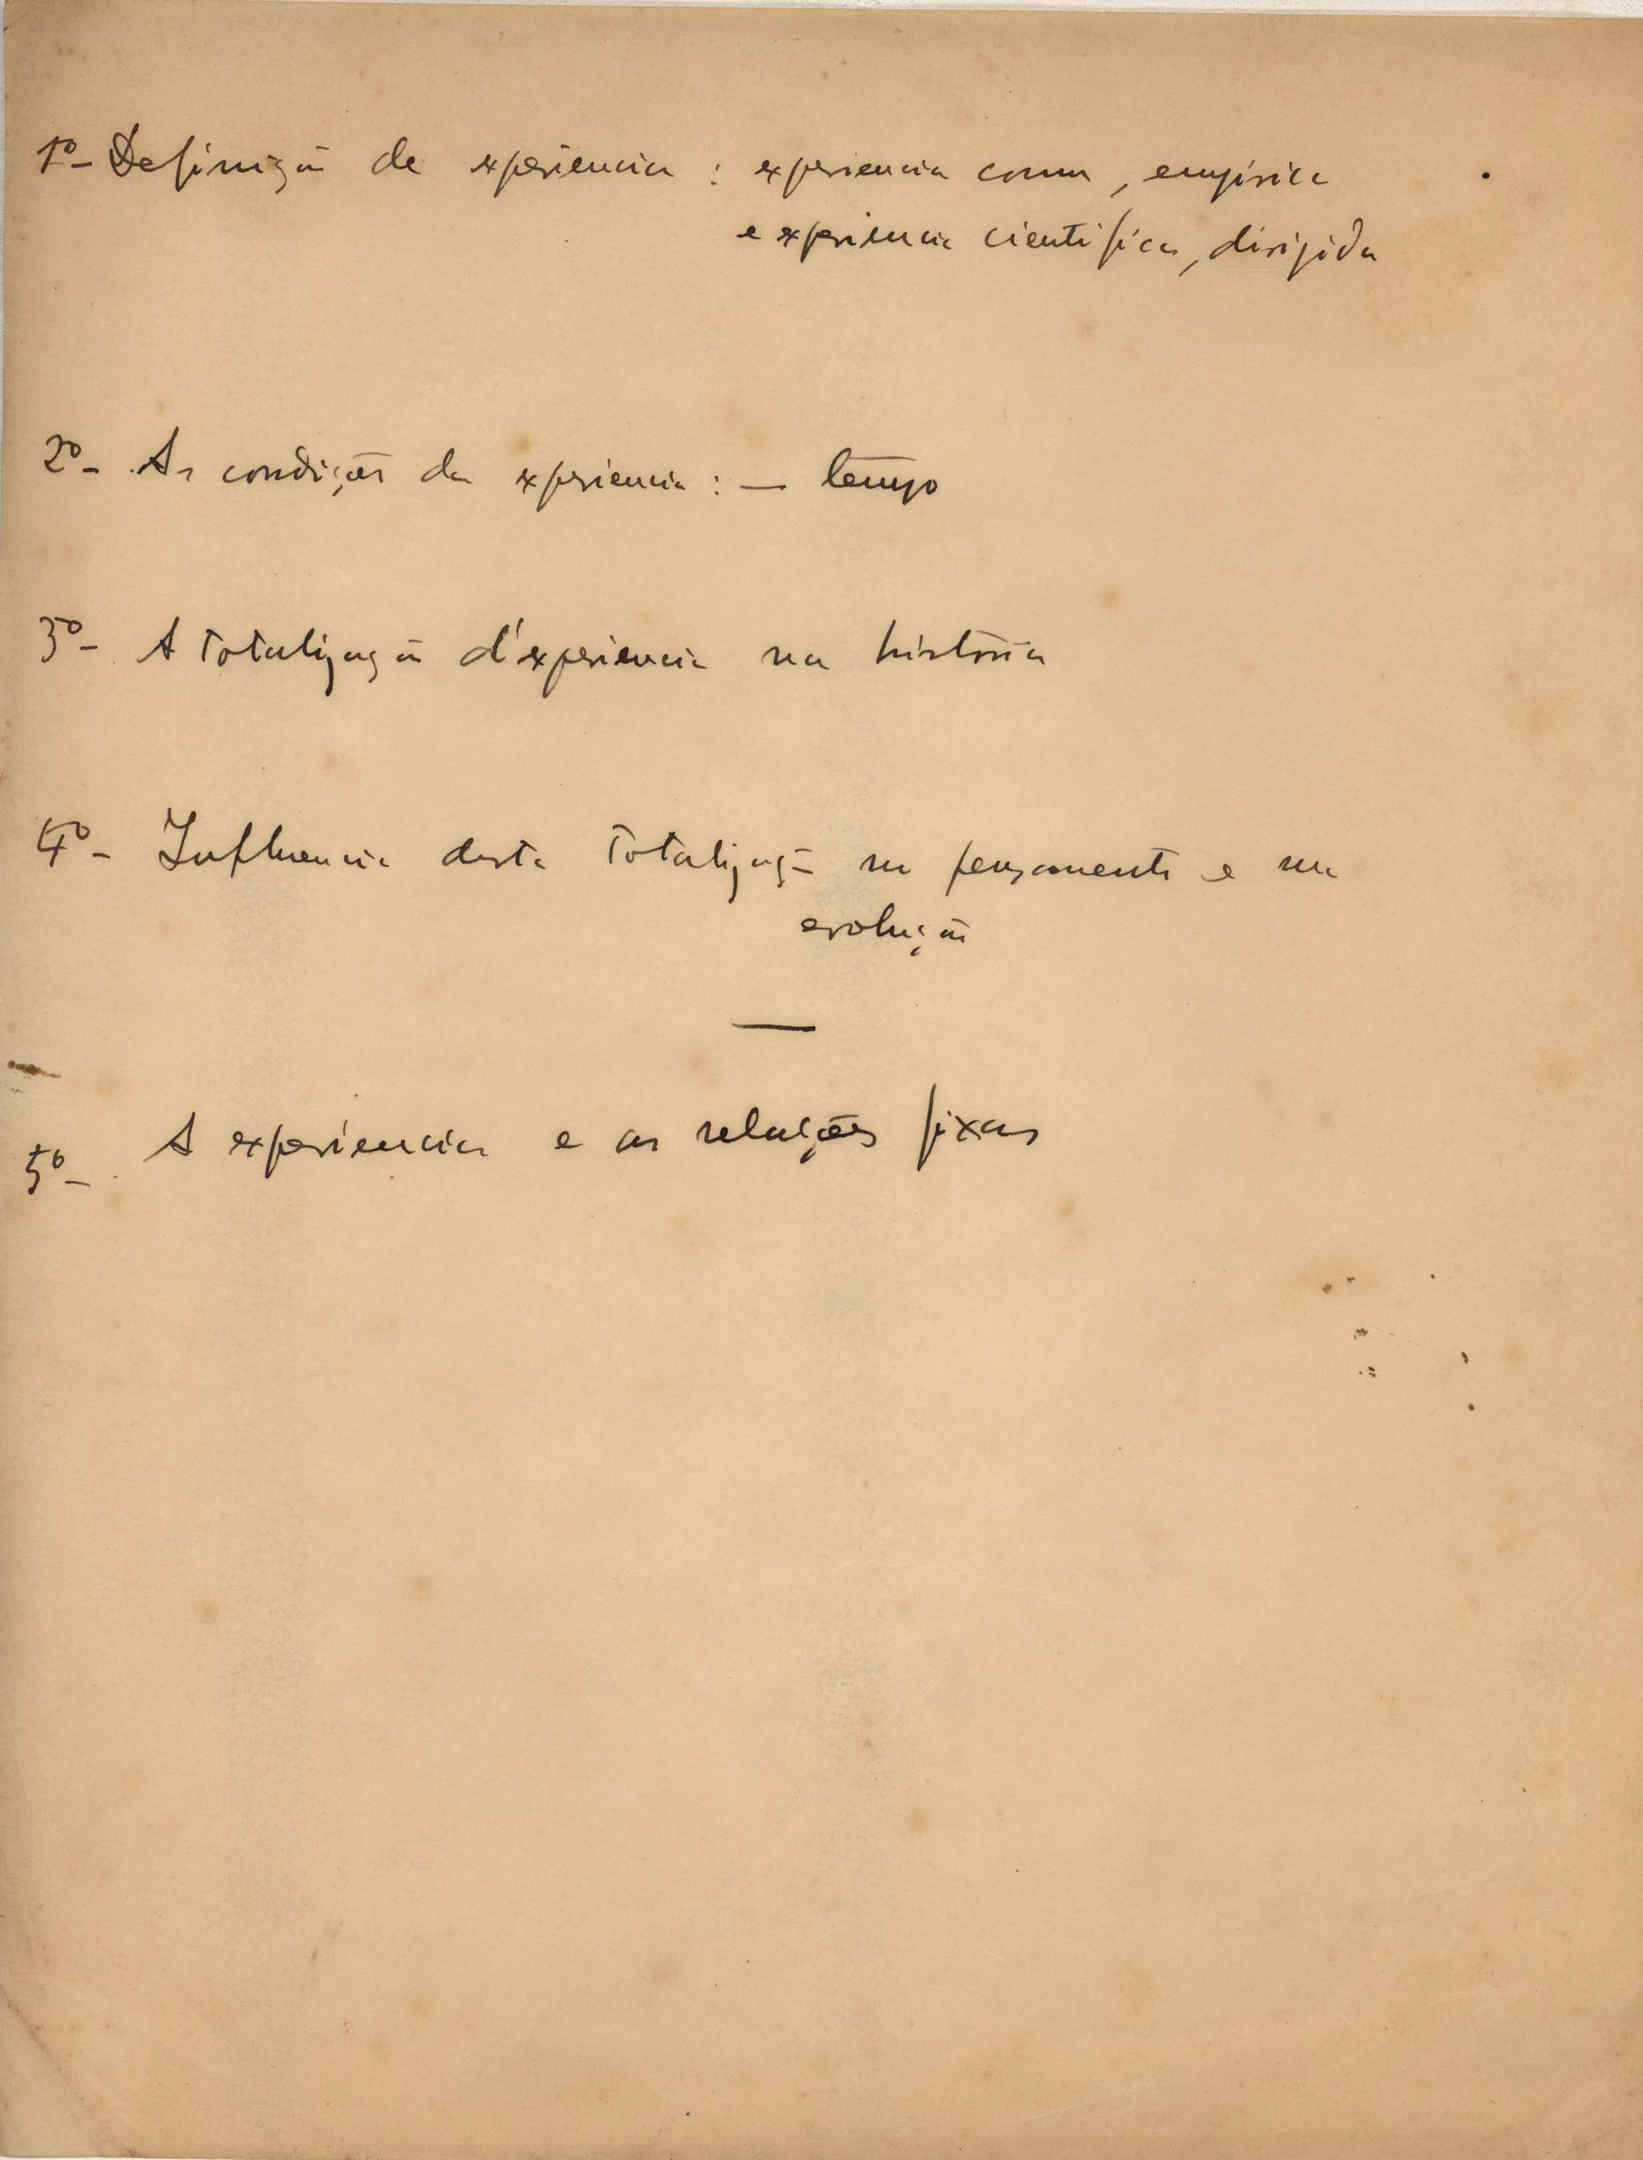 1º- Definição de experiencia : experiencia comum, empírica
e experiencia cientifica, dirigida
2º- As condições da experiencia : — tempo
3º- A totalização d'experiencia na história
4º- Influencia desta totalização no pensamento e na
evolução
5º- A experiencia e as relações fixas